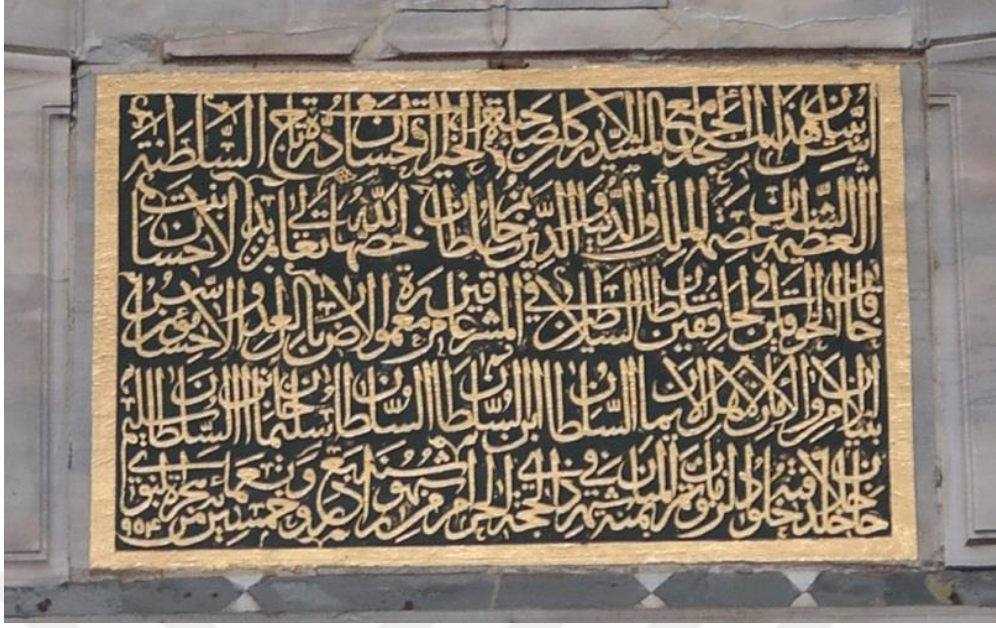 أسس بنيان هذا المسجد الجامع المشيد الأركان صاحبة الخيرات الحسان درة تاج السلطنة
العظمى الشان عصمة الملك والدنيا والدين سلطان خصها الله تعالى بمزيد الاحسان بنت
خاقان الخافقين سلطان السلاطين في المشرقين معمر الارض بالعدل والاحسان مؤسس
بنيان الامن والأمان لاهل الايمان السلطان ابن السلطان السلطان سليمان خان ابن السلطان سليم
خان خلافته الزمان وتم في شهر ذي الحجة الحرام من شهور سنة اربع وخمسين وتسعمائة من هجرة ٩٥٤